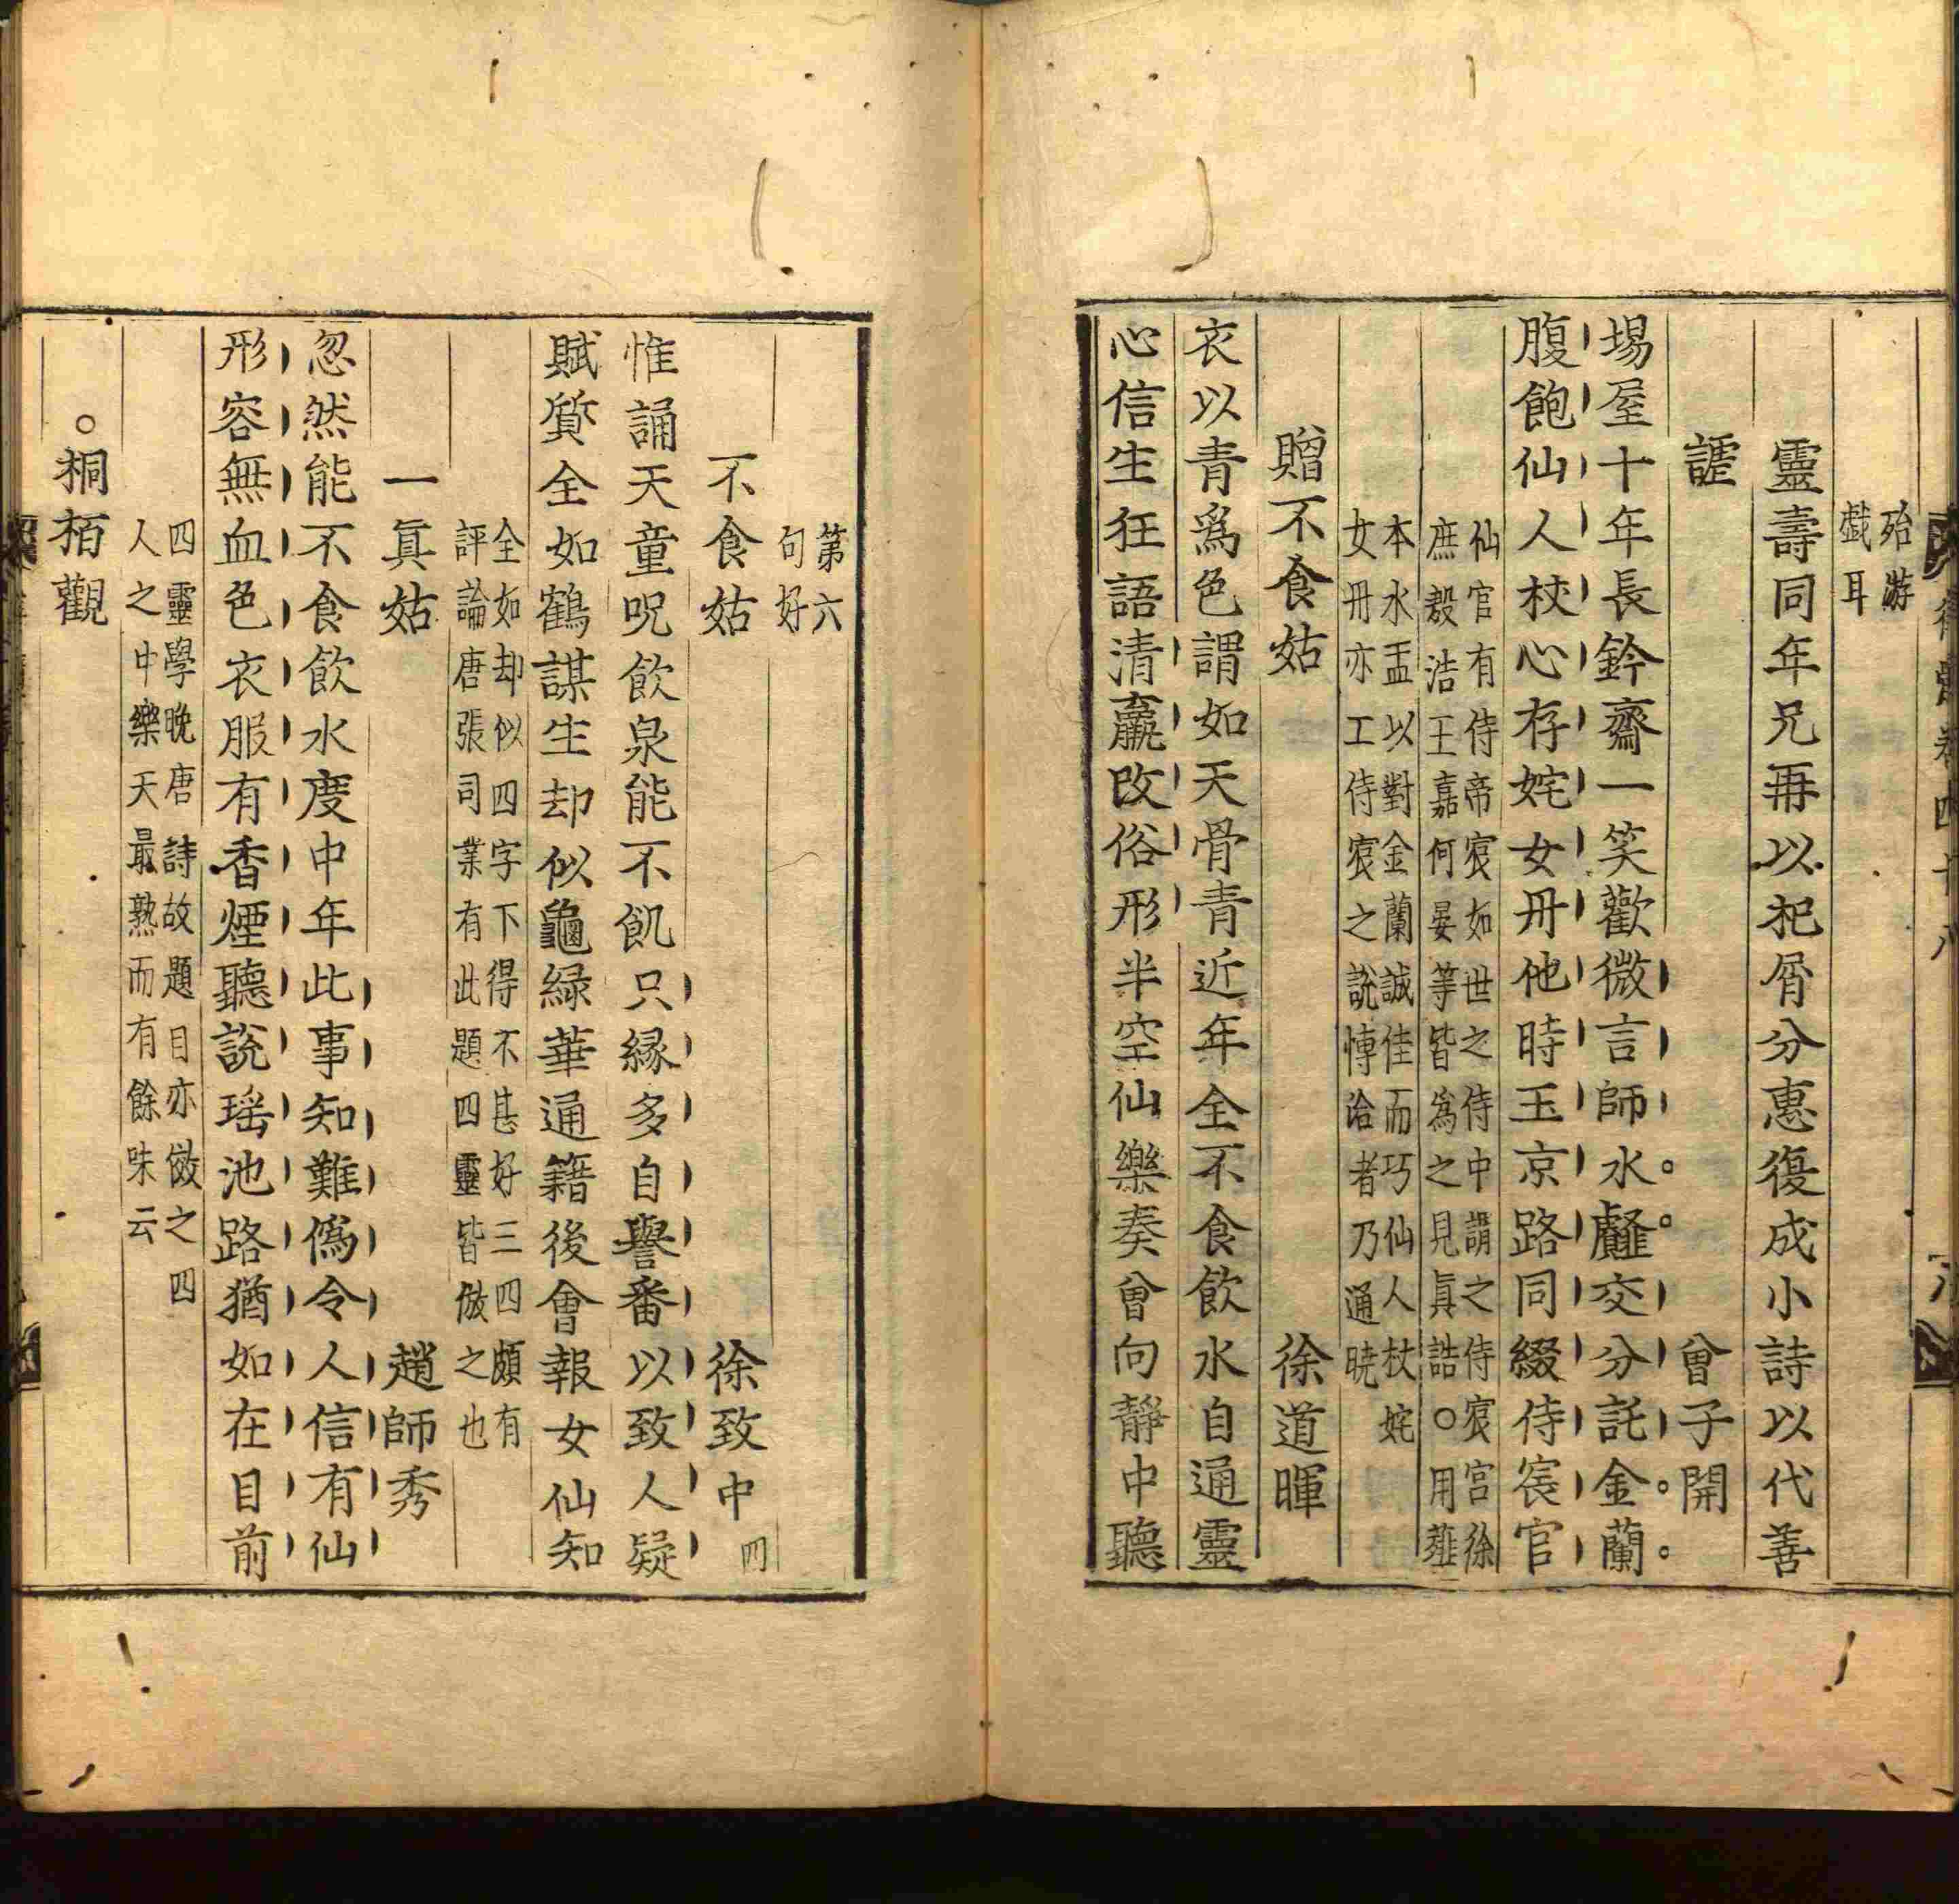 殆游
戯耳
靈壽同年兄再以杞屑分惠復成小詩以代善
謔 曾子開
場屋十年長鈐齋一笑歡微言師水䪥交分託金蘭
腹飽仙人杖心存姹女丹他時玉京路同綴侍宸官
仙官有侍帝宸如世之侍中謂之侍宸宫徐
庶殷浩王嘉何晏等皆為之見真誥○用薤
本水盂以對金蘭誠佳而巧仙人杖姹
女丹亦工侍宸之說博洽者乃通曉
贈不食姑 徐道暉
衣以青爲色謂如天骨青近年全不食飲水自通靈
心信生狂語清羸改俗形半空仙樂奏曾向静中聽
第六
句好
不食姑 徐致中 四
惟誦天童呪飲泉能不飢只縁多自譽番以致人疑
賦質全如鶴謀生却似龜緑華通籍後會報女仙知
全如却似四字下得不甚好三四頗有
評論唐張司業有此題四靈皆倣之也
一真姑 趙師秀
忽然能不食飲水度中年此事知難僞令人信有仙
形容無血色衣服有香煙聽說瑶池路猶如在目前
四靈學晚唐詩故題目亦倣之四
人之中樂天最熟而有餘味云
○桐栢觀